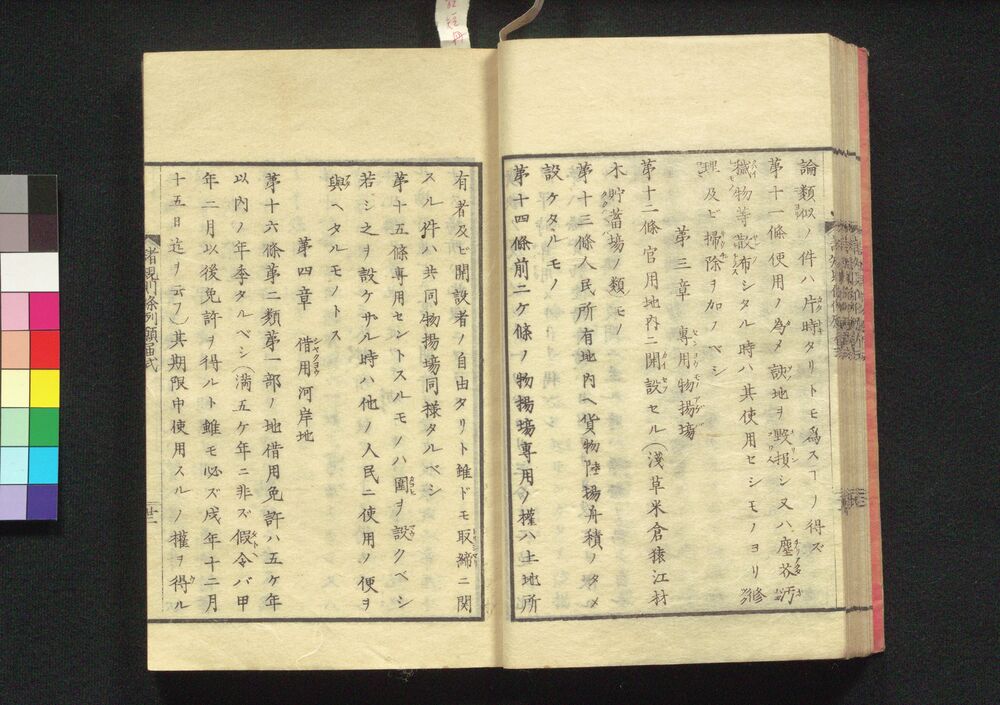 論類似ノ件ハ片時タリトモ為スヿノ得ズ
第十一條使用ノ為メ該地ヲ毀損シ又ハ塵芥汚
穢物等散布シタル時ハ其使用セシモノヨリ修
理及ビ掃除ヲ加ノベシ
第三章 専用物揚場
第十二條官用地内ニ開設セル(淺草米倉猿江材
木貯蓄場ノ類)モノ
第十三條人民所有地内ヘ貨物陸揚舟積ノタメ
設ケタルモノ
第十四條前二ケ條ノ物揚場専用ノ權ハ土地所
有者及ビ開設者ノ自由タリト雖ドモ取締ニ関
スル件ハ共同物揚場同様タルベシ
第十五條専用セントスルモノハ圍ヲ設クベシ
若シ之ヲ設ケザル時ハ他ノ人民ニ使用ノ便ヲ
與ヘタルモノトス
第四章 借用河岸地
第十六條第二類第一部ノ地借用免許ハ五ケ年
以内ノ年季タルベシ(満五ケ年ニ非ズ假令バ甲
年二月以後免許ヲ得ルト雖モ必ズ戌年十二月
十五日迄ヲ云フ)其期限中使用スルノ權ヲ得ル
諸規則條例願届式
廿二